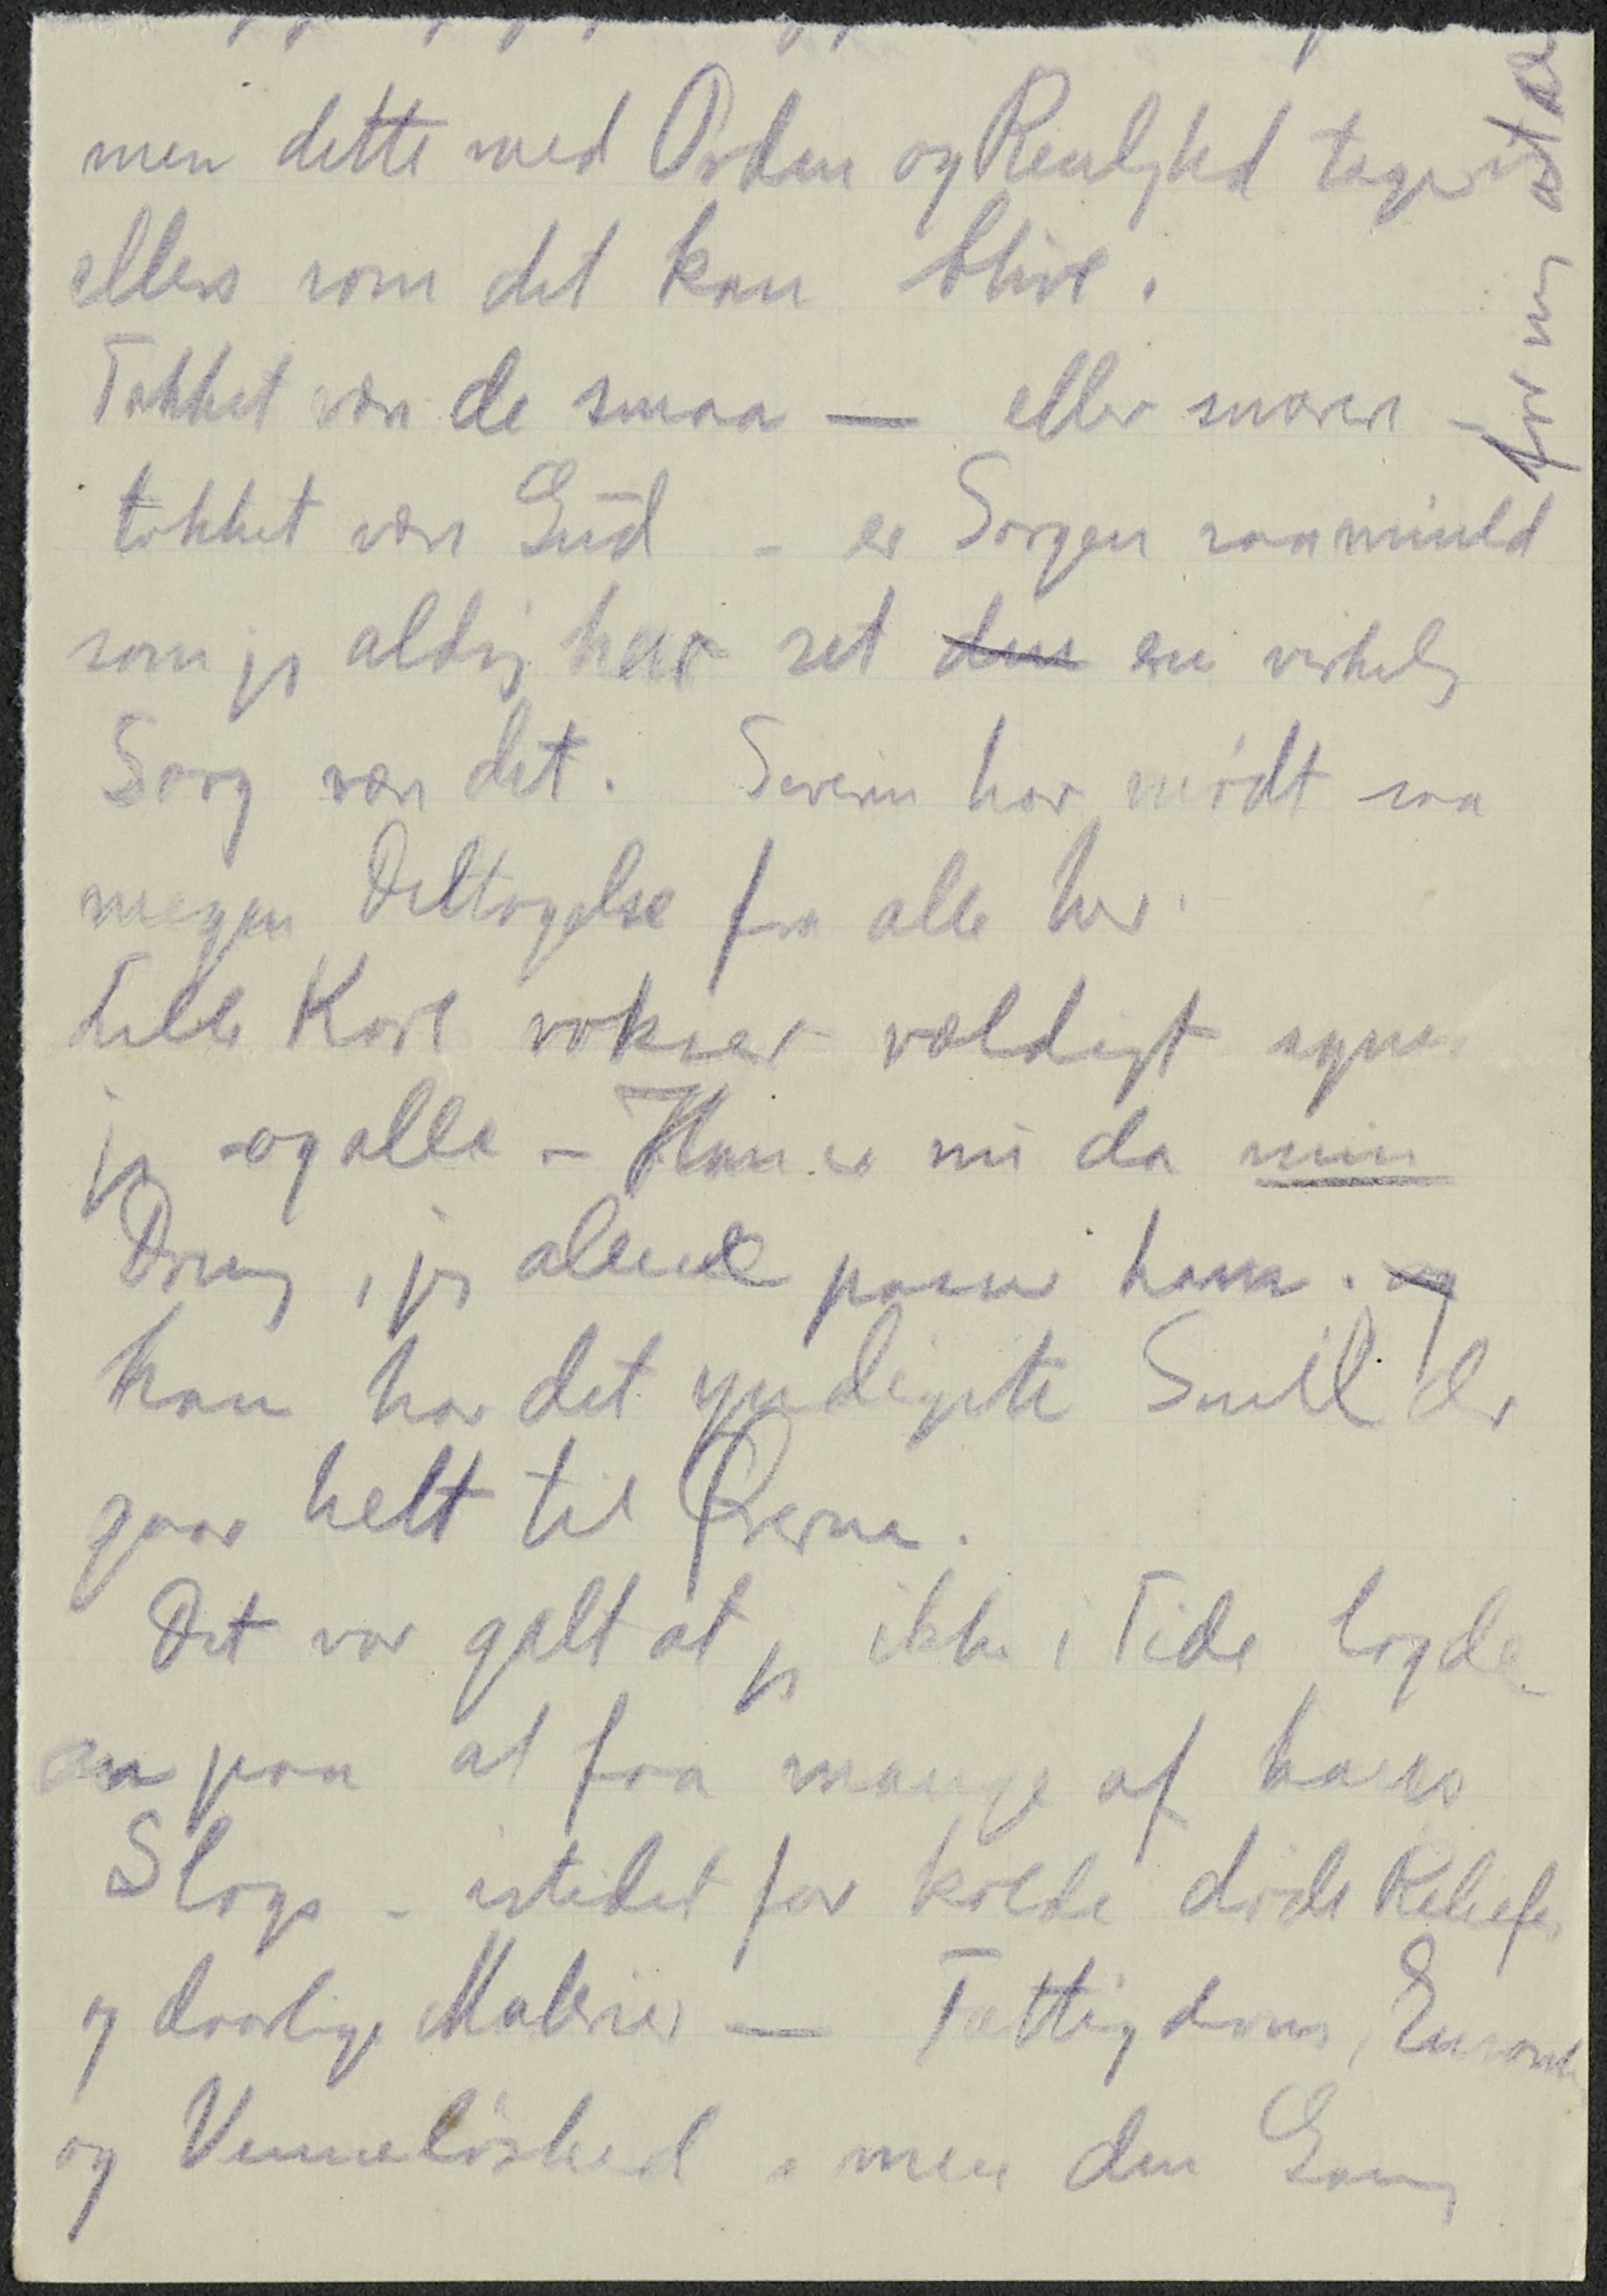 men dette med Orden og Renlighed tager
ellers som det kan blive.
Takket være de smaa — eller snarere -
takket være Gud - er Sorgen saa mild
som jeg aldrig har set den en virkelig
Sorg være det. Severin har mødt saa
megen Deltagelse fra alle her.
Lille Karl vokser vældigt synes
jeg - og alle - Han er nu da min
Dreng, jeg alene passer ham. og
han har det yndigste Smil der
gaar helt til Ørerne.
Det var galt at jeg ikke i Tide lagde
an paa at faa mange af hans
Slags - istedet for kolde døde Relieffer
og daarlige Malerier — Fattigdom, Ensomhed
og Venneløshed, men den Gang
for mig